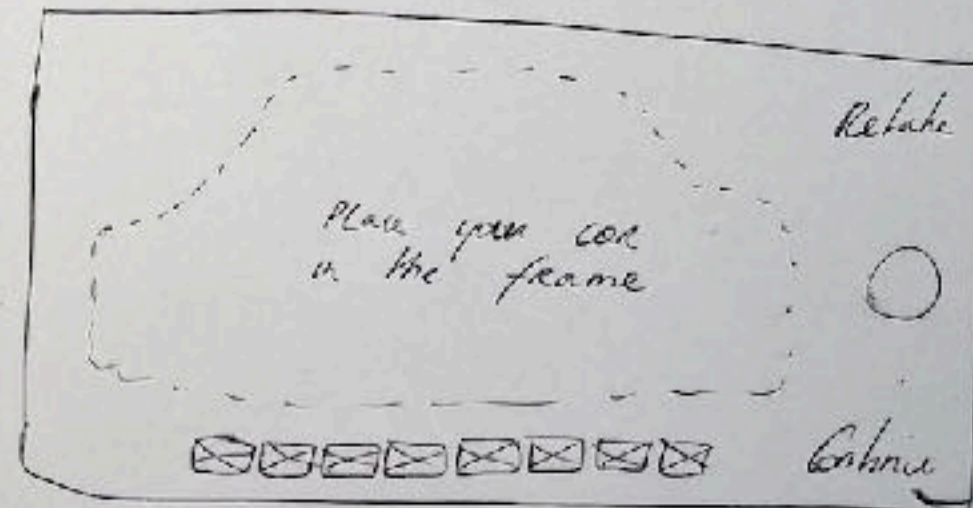 Retake
Place your car
in the frame
Continue